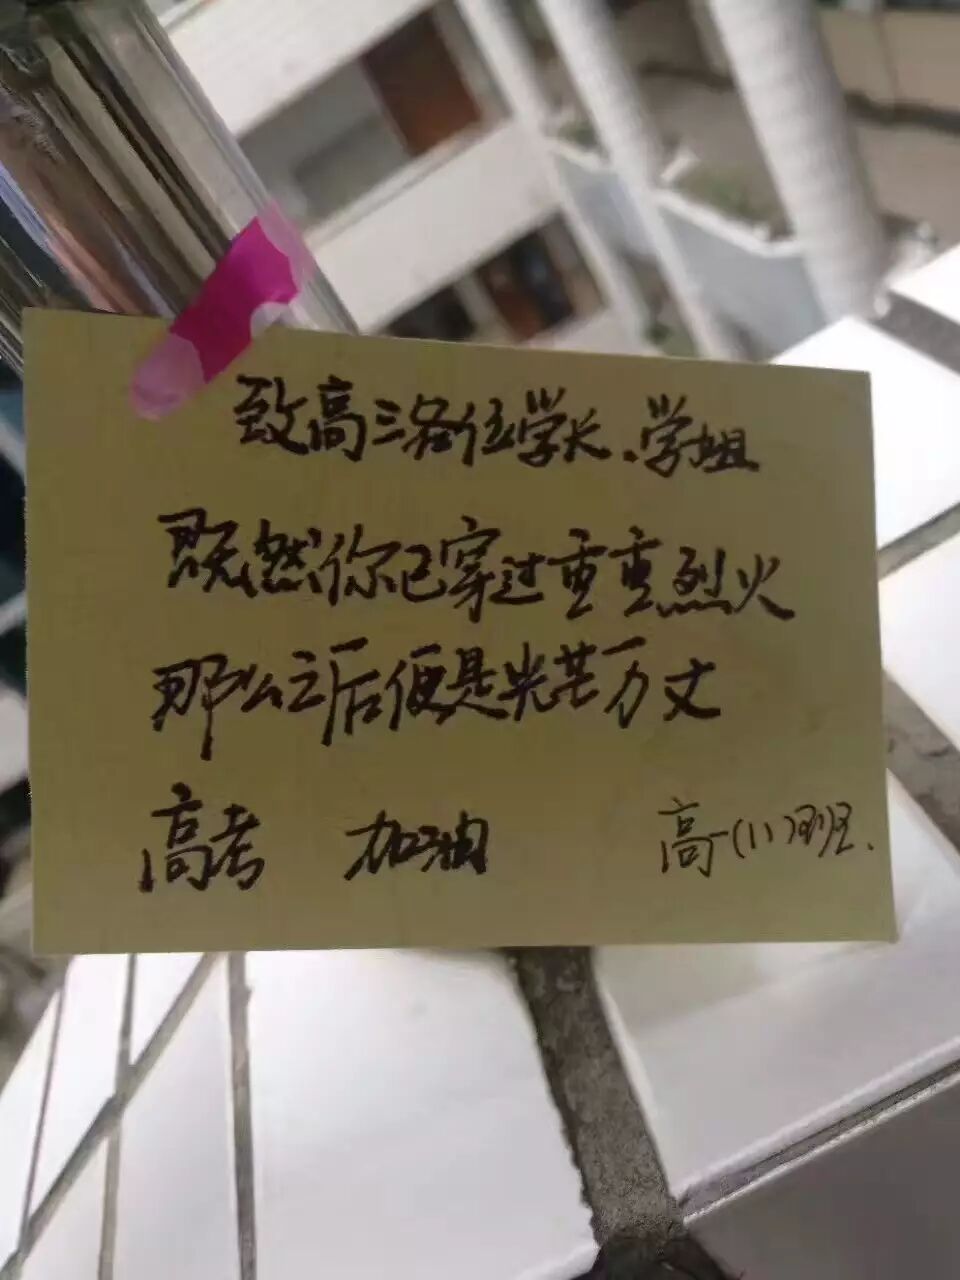 致高三各位学长、学姐
既然你已穿过重重烈火
那么之后便是光芒万丈
高考 加油 高一(11)班.